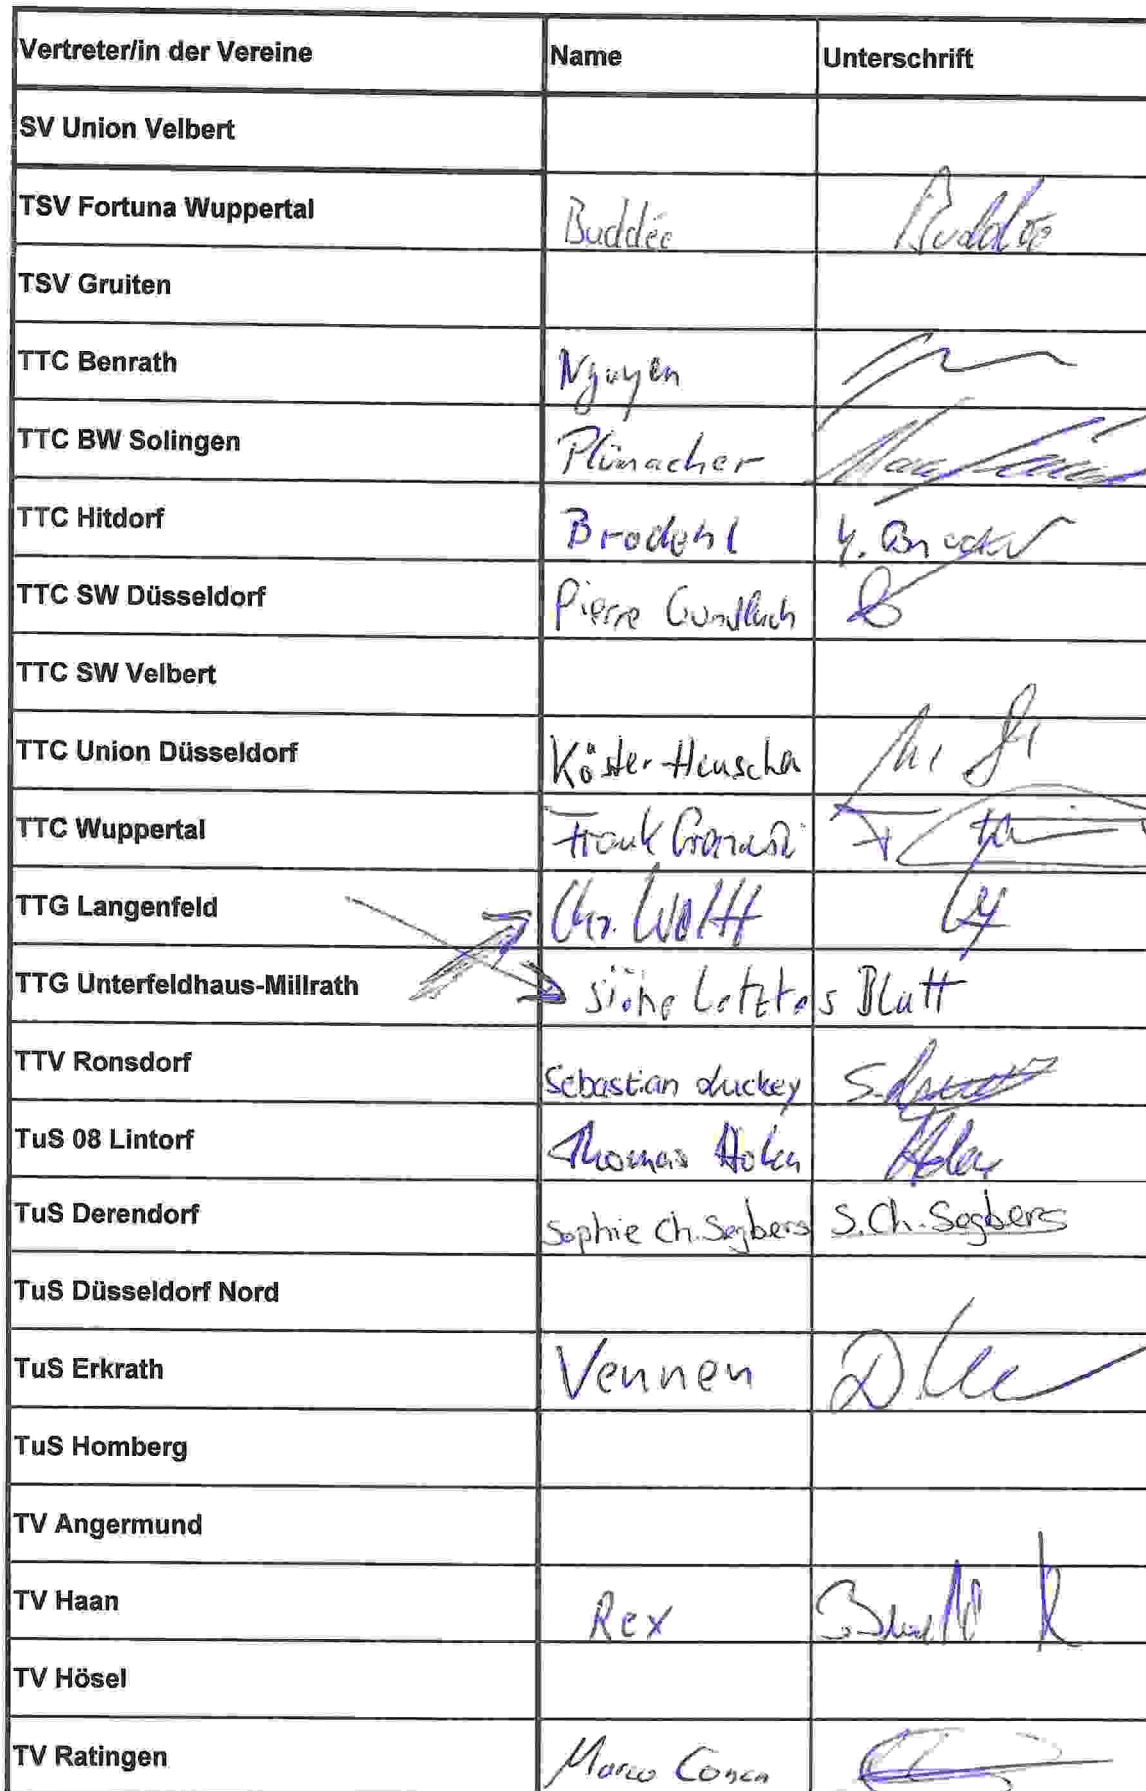 Vertreter/in der Vereine Name Unterschrift
SV Union Velbert
TSV Fortuna Wuppertal Buddée Buddée
TSV Gruiten
TTC Benrath Nguyen
TTC BW Solingen Plümacher
TTC Hitdorf Brodehl
TTC SW Düsseldorf Pierre Gundlach
TTC SW Velbert
TTC Union Düsseldorf Köster-Heuscher
TTC Wuppertal Frank
TTG Langenfeld Chr. Wolff
TTG Unterfeldhaus-Millrath siehe Letztes Blatt
TTV Ronsdorf Sebastian Luckey
TuS 08 Lintorf Thomas
TuS Derendorf Sophie Ch. Segbers S.Ch. Segbers
TuS Düsseldorf Nord
TuS Erkrath Vennen
TuS Homberg
TV Angermund
TV Haan Rex
TV Hösel
TV Ratingen Marco